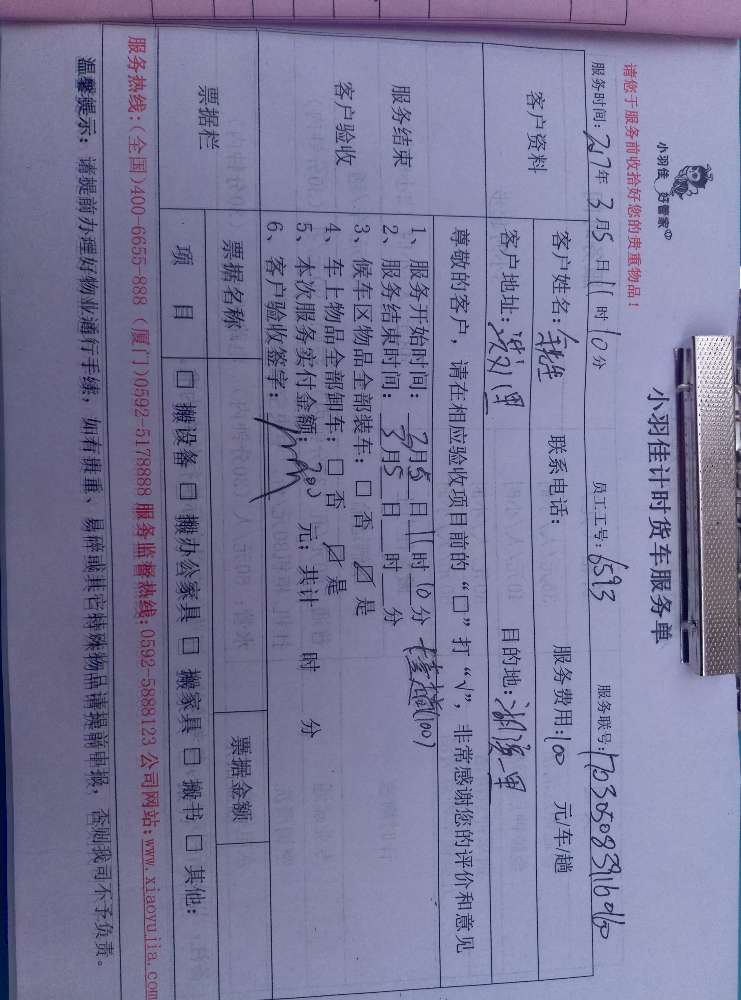 小羽佳 好管家
请您于服务前收拾好您的贵重物品！
小羽佳计时货车服务单
服务时间：2017年3月5日11时10分 员工工号：6593 服务联号：
客户资料
客户姓名： 联系电话： 服务费用：100 元/车/趟
客户地址： 目的地：
服务结束
客户验收
尊敬的客户，请在相应验收项目前的“□”打“√”，非常感谢您的评价和意见
1、服务开始时间：3月5日11时10分
2、服务结束时间：3月5日 时 分
3、候车区物品全部装车：□否 ☑是
4、车上物品全部卸车：□否 ☑是
5、本次服务实付金额：200 元；共计 时 分
6、客户验收签字：
票据栏
票据名称 票据金额
项 目 □搬设备 □搬办公家具 □搬家具 □搬书 □其他：
服务热线：(全国)400-6655-888 (厦门)0592-5178888 服务监督热线：0592-5888123 公司网站：www.xiaoyujia.com
温馨提示：请提前办理好物业通行手续，如有贵重、易碎或其它特殊物品请提前申报，否则我司不予负责。